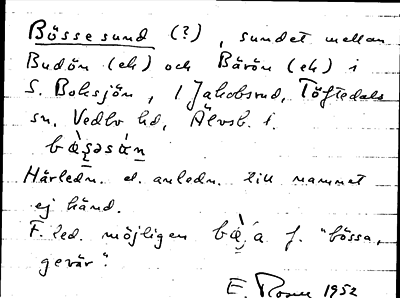 Bössesund (?), sundet mellan
Budön (ek) och Bärön (ek) i
S. Boksjön, 1 Jakobsrud, Töftedals
sn, Vedbo hd, Älvsb. l.
Härledn. el. anledn. till namnet
ej känd.
F. led. möjligen f. "bössa,
gevär".
E. 1952